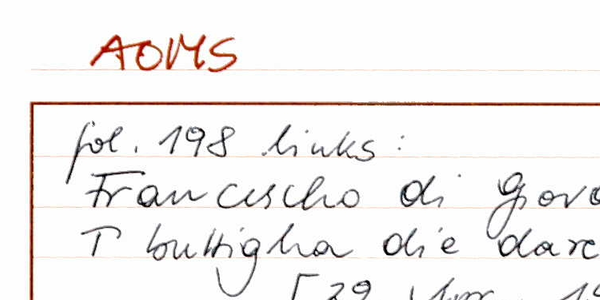 AOIMS
fol. 198 links:
Francescho di Giova
T buttigha die dare
[29